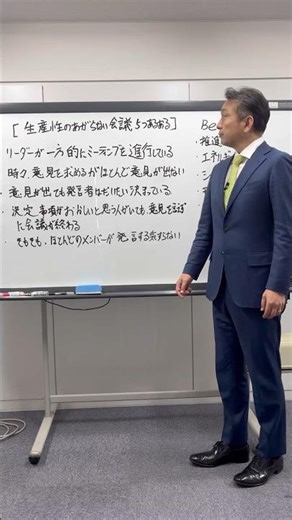 [生産性のあがらない会議 5つあるある]
リーダーが一方的にミーティングを進行している
時々、意見を求めるがほとんど意見が出ない
・意見が出ても発言者はだいたい決まっている
・決定事項がおかしいと思う人がいても意見を言えずに会議が終わる
・そもそも、ほとんどのメンバーが発言する気がない
Be
・推進
・エネルギ